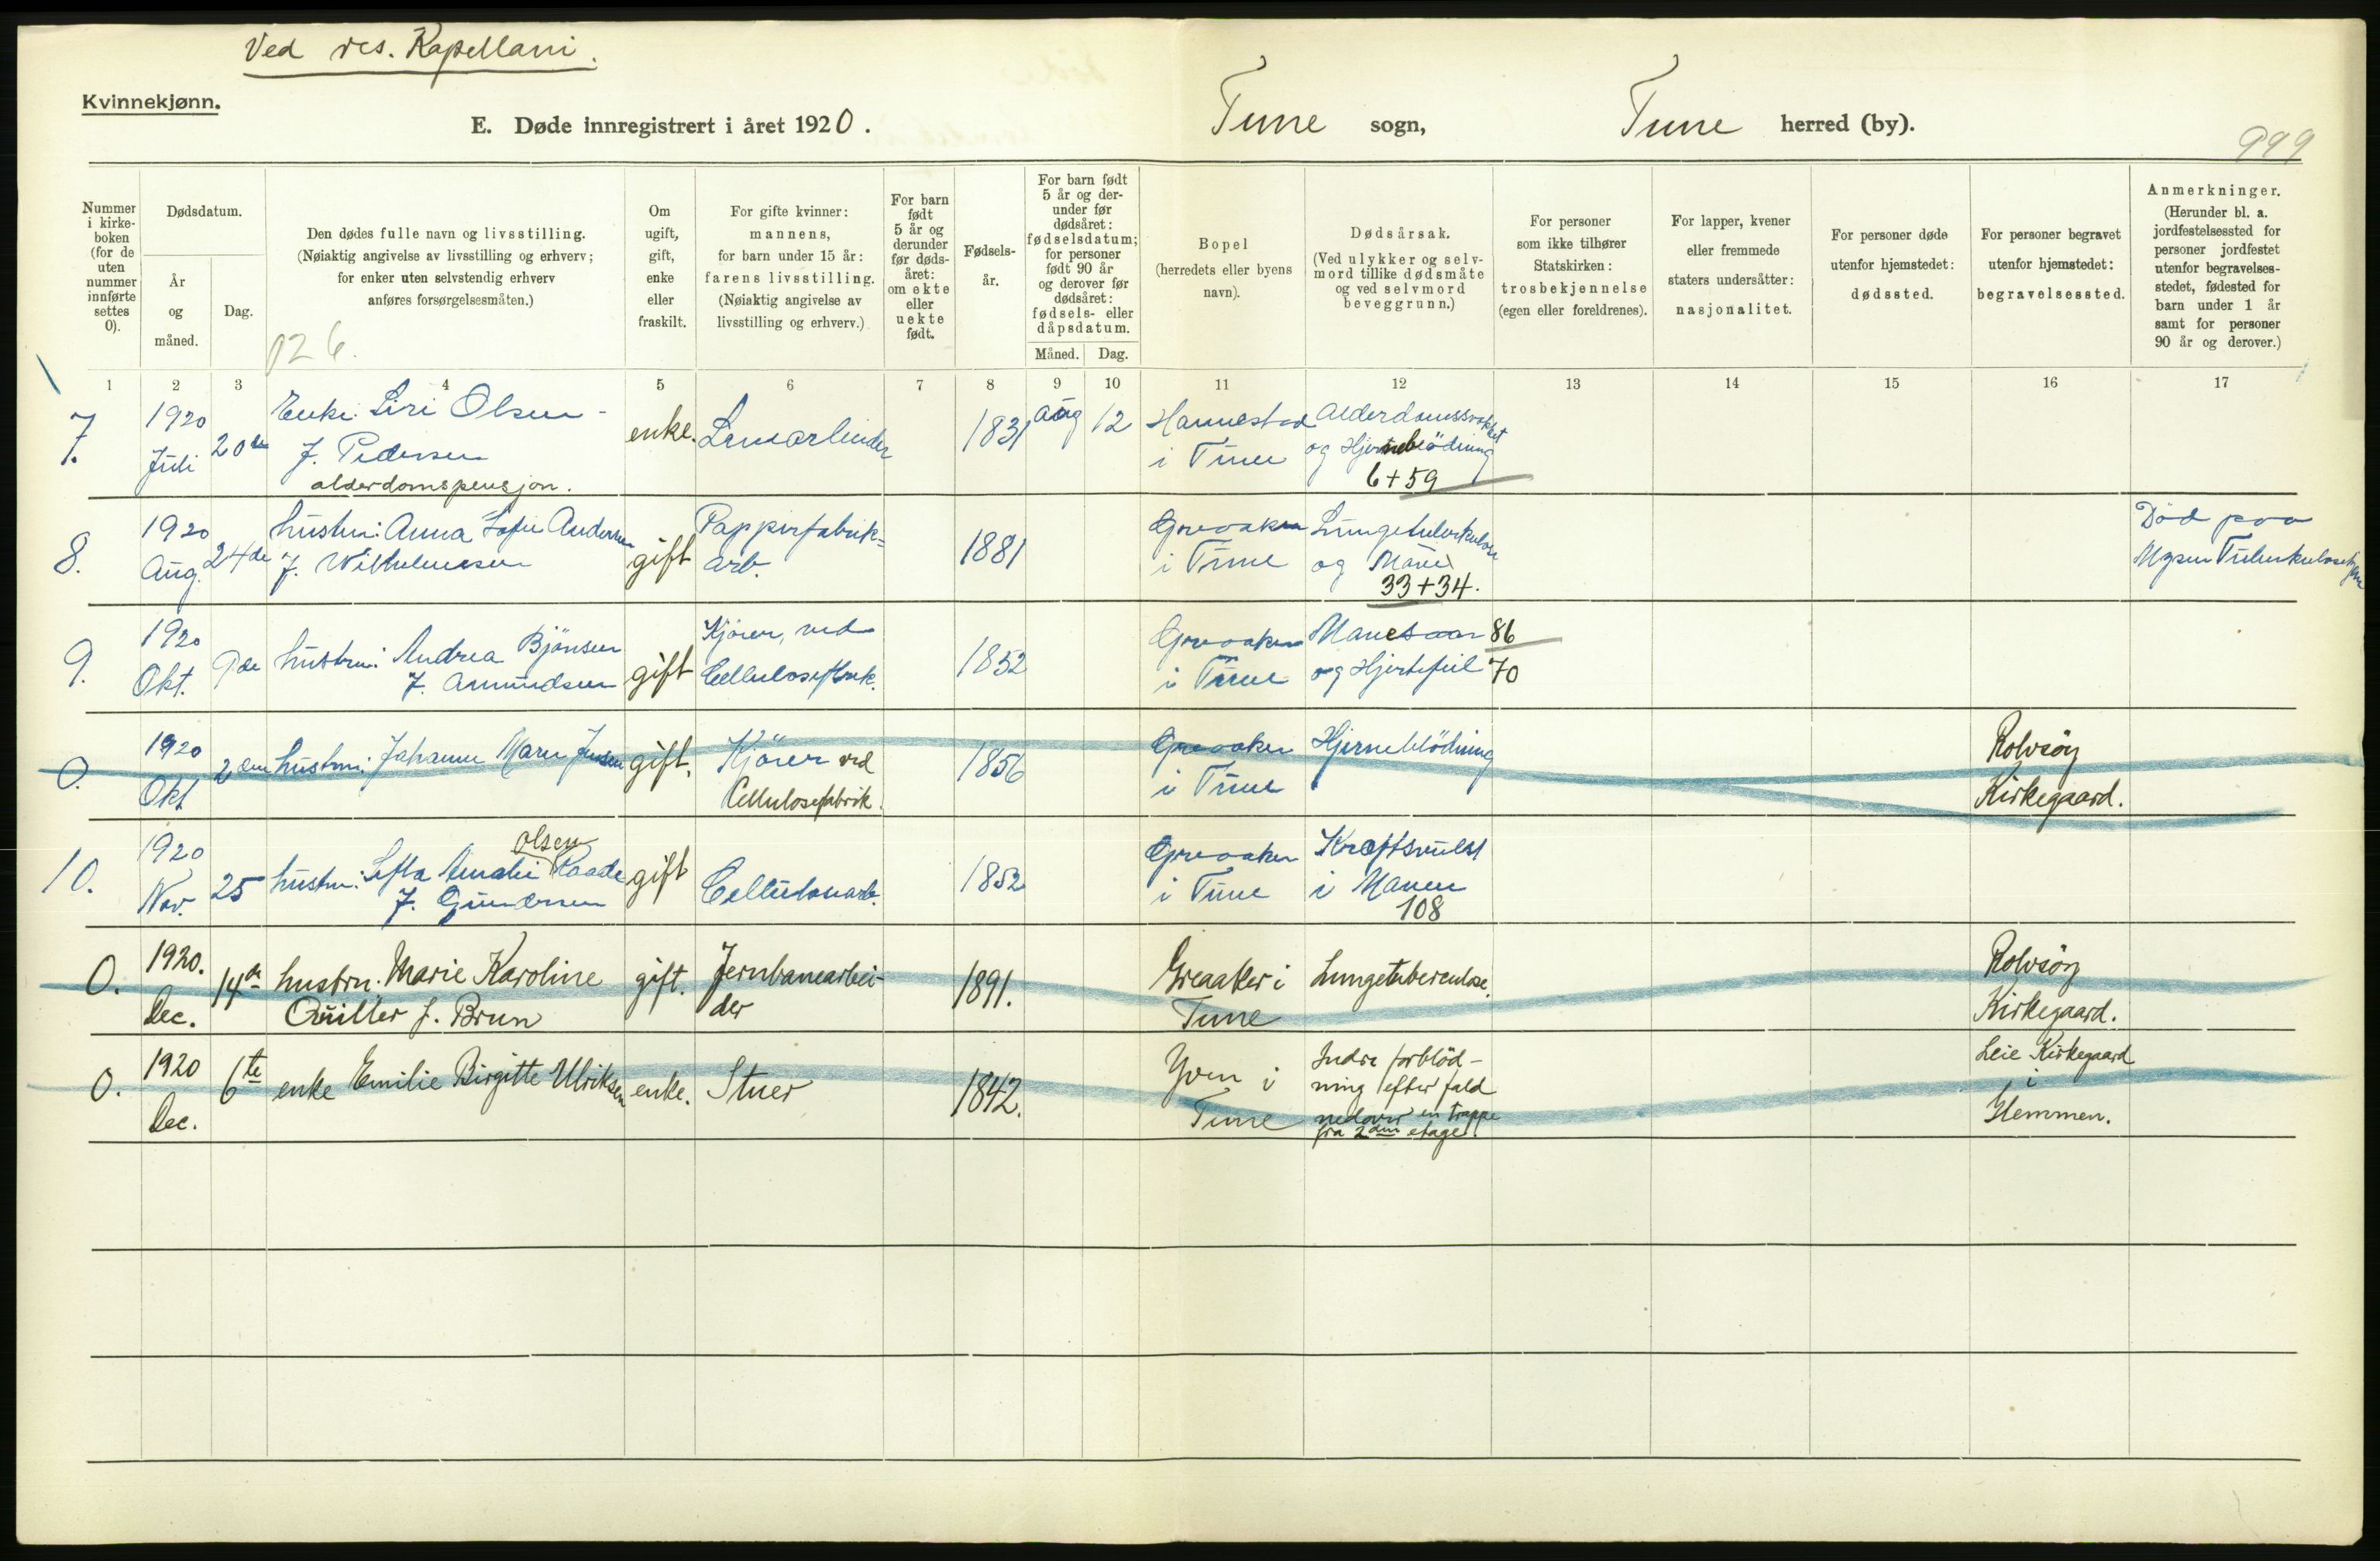 Ved res. Kapellani.
Kvinnekjønn.
E. Døde innregistrert i året 1920.
Tune sogn, Tune herred (by).
999
Nummer i kirke-boken (for de uten nummer innførte settes 0).
Dødsdatum.
År og måned.
Dag.
Den dødes fulle navn og livsstilling.
(Nøiaktig angivelse av livsstilling og erhverv;
for enker uten selvstendig erhverv
anføres forsørgelsesmåten.)
026.
Om ugift, gift, enke eller fraskilt.
For gifte kvinner:
mannens,
for barn under 15 år:
farens livsstilling.
(Nøiaktig angivelse av
livsstilling og erhverv.)
For barn født 5 år og derunder før døds-året: om ekte eller uekte født.
Fødsels-år.
For barn født 5 år og der-under før dødsåret: fødselsdatum; for personer født 90 år og derover før dødsåret: fødsels- eller dåpsdatum.
Måned. Dag.
Bopel
(herredets eller byens
navn).
Dødsårsak.
(Ved ulykker og selv-
mord tillike dødsmåte
og ved selvmord
beveggrunn.)
For personer
som ikke tilhører
Statskirken:
trosbekjennelse
(egen eller foreldrenes).
For lapper, kvener
eller fremmede
staters undersåtter:
nasjonalitet.
For personer døde
utenfor hjemstedet:
dødssted.
For personer begravet
utenfor hjemstedet:
begravelsessted.
Anmerkninger.
(Herunder bl. a.
jordfestelsessted for
personer jordfestet
utenfor begravelses-
stedet, fødested for
barn under 1 år
samt for personer
90 år og derover.)
1 2 3 4 5 6 7 8 9 10 11 12 13 14 15 16 17
7. 1920 Juli 20de
Enke Siri Olsen
f. Pedersen
alderdomspensjon.
enke. 1831 Aug 12
Hannestad
i Tune
Alderdomssvakhet
og Hjerneblödning
6+59
8. 1920 Aug. 24de
hustru: Anna Sofie Andersen
f. Wilhelmsen
gift
Pappirfabrik=
arb.
1881
Greaaker
i Tune
Lungetuberkulose
og
33+34.
Död paa
Mysen Tuberkulosehjem
9. 1920 Okt. 9de
hustru: Andrea Bjönsen
f. Amundsen
gift
Kjörer, ved
Cellulosefabrik.
1852
Greaaker
i Tune
Mavesaar 86
og Hjertefeil 70
0. 1920 Okt 2den
hustru: Johanne Marie Jensen
gift.
Kjörer ved
Cellulosefabrik.
1856
Greaaker
i Tune
Hjerneblödning
Rolvsöy
Kirkegaard.
10. 1920 Nov. 25
olsen
hustru: Amalie Raade
f. Gundersen
gift
Cellulosearb.
1852
Greaaker
i Tune
Kræftsvulst
i Maven
108
0. 1920. Dec. 14de
hustru. Marie Karoline
Quiller f. Brun
gift.
Jernbanearbei-
der
1891.
Greaaker i
Tune
Lungetuberculose.
Rolvsöy
Kirkegaard.
0. 1920 Dec. 6te
enke Emilie Birgitte Ulriksen
enke.
Stuer
1842.
Yven i
Tune
Indre forblöd-
ning efter fald
nedover en trappe
fra 2den etage.
Leie Kirkegaard
i
Hemmen.